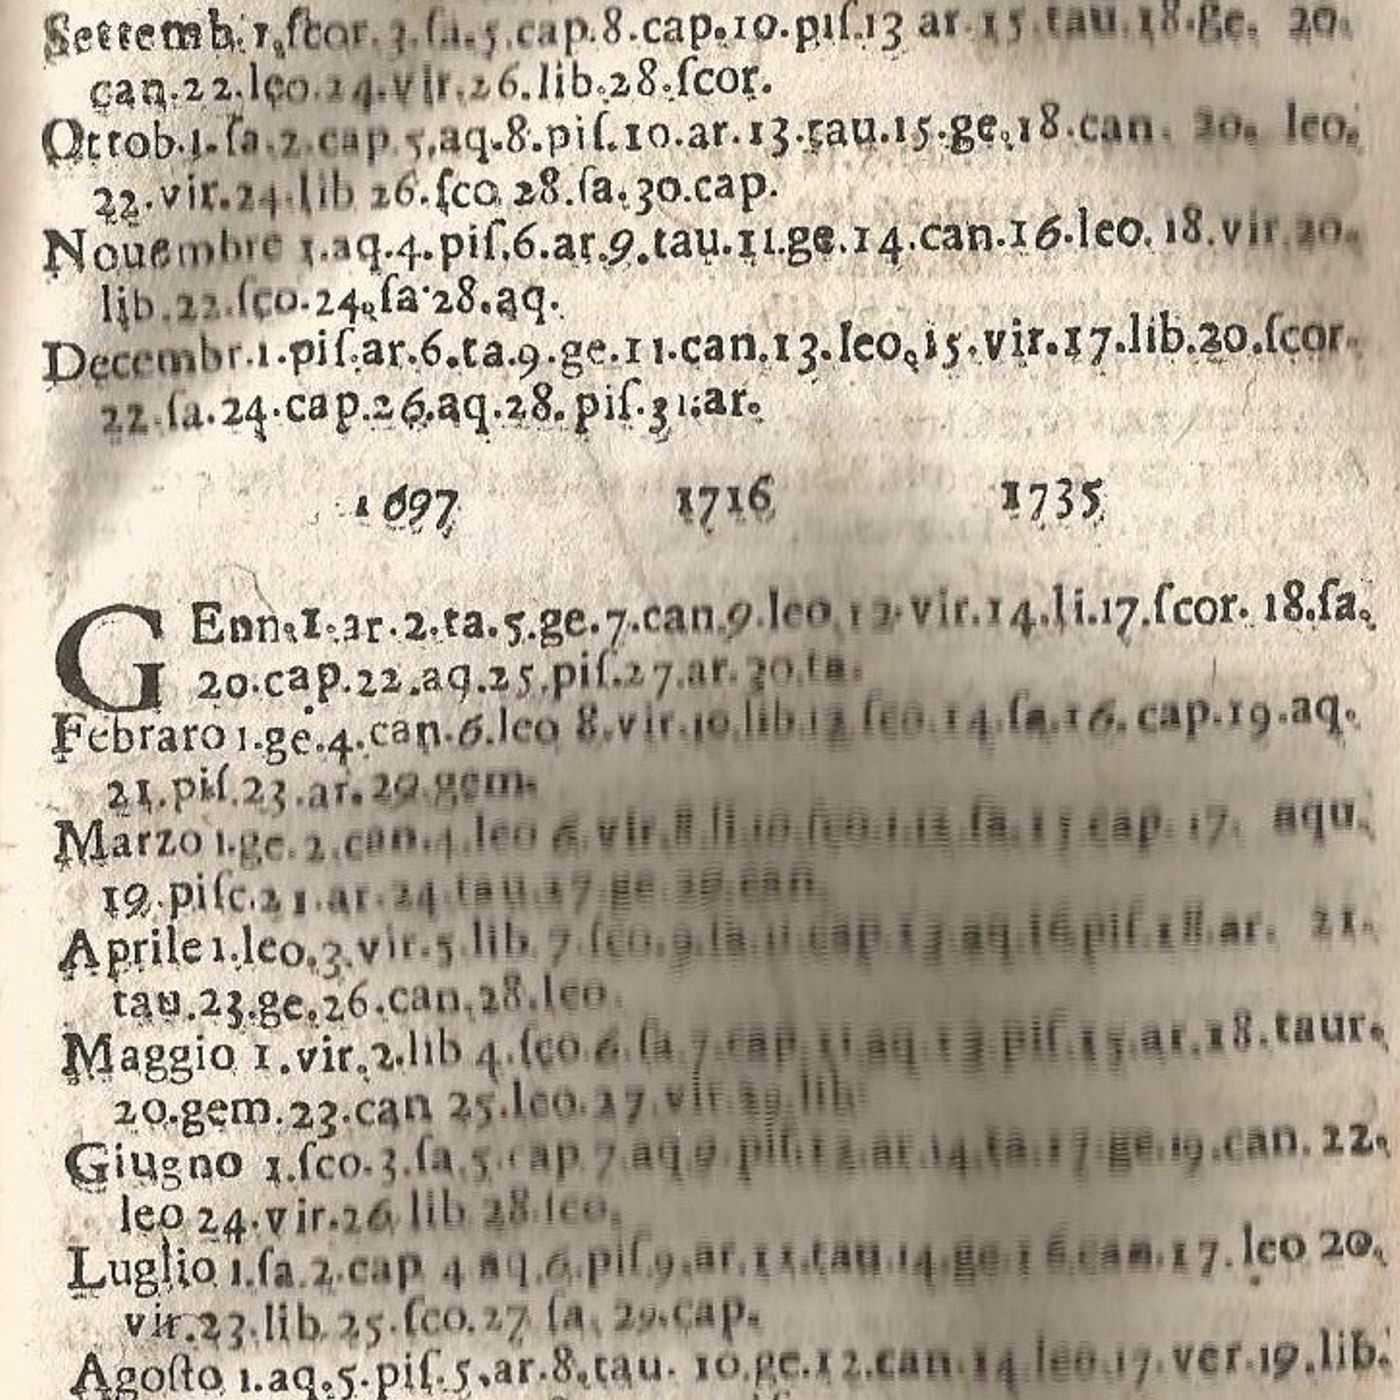 Settemb.1.ſcor.3.ſa.5.cap.8.cap.10.piſ.13 ar.15.tau.18.ge. 20.
can.22.leo.24.vir.26.lib.28.ſcor.
Ottob.1.ſa.2.cap.5.aq.8.piſ.10.ar.13.tau.15.ge.18.can. 20. leo.
22.vir.24.lib 26.ſco 28.ſa.30.cap.
Nouembre 1.aq.4.piſ.6.ar.9.tau.11.ge.14.can.16.leo.18.vir.20.
lib.22.ſco.24.ſa.28.aq.
Decembr.1.piſ.ar.6.ta.9.ge.11.can.13.leo.15.vir.17.lib.20.ſcor.
22.ſa.24.cap.26.aq.28.piſ.31.ar.
1697 1716 1735
GEnn.1.ar.2.ta.5.ge.7.can.9.leo 12.vir.14.li.17.ſcor. 18.ſa.
20.cap.22.aq.25.piſ.27.ar.30.ta.
Febraro 1.ge.4.can.6.leo 8.vir.10.lib.12 ſco.14.ſa.16.cap.19.aq.
21.piſ.23.ar.29.gem.
Marzo 1.ge.2.can.4.leo 6.vir.8.li.10.ſco ſa.15 cap. 17. aqu.
19.piſc.21.ar.24.tau.17.ge.29.can
Aprile 1.leo.3.vir.5.lib.7.ſco.9.ſa.11 cap 13 aq.16 piſ.18.ar. 21.
tau.23.ge.26.can.28.leo.
Maggio 1.vir.2.lib 4.ſco.6.ſa.7.cap.11 aq.13 piſ.15.ar.18.taur.
20.gem.23.can 25.leo.27.vir.29.lib
Giugno 1.ſco.3.ſa.5.cap.7.aq.9.piſ.12.ar.14.ta.17.ge.19.can.22.
leo 24.vir.26 lib 28.ſco.
Luglio 1.ſa.2.cap 4 aq.6.piſ.9.ar.11.tau.14.ge.16.can.17.leo 20.
vir.23.lib 25.ſco.27 ſa. 29.cap.
Agoſto 1.aq.5.piſ.5.ar.8.tau. 10.ge.12.can.14 leo.17.ver.19.lib.